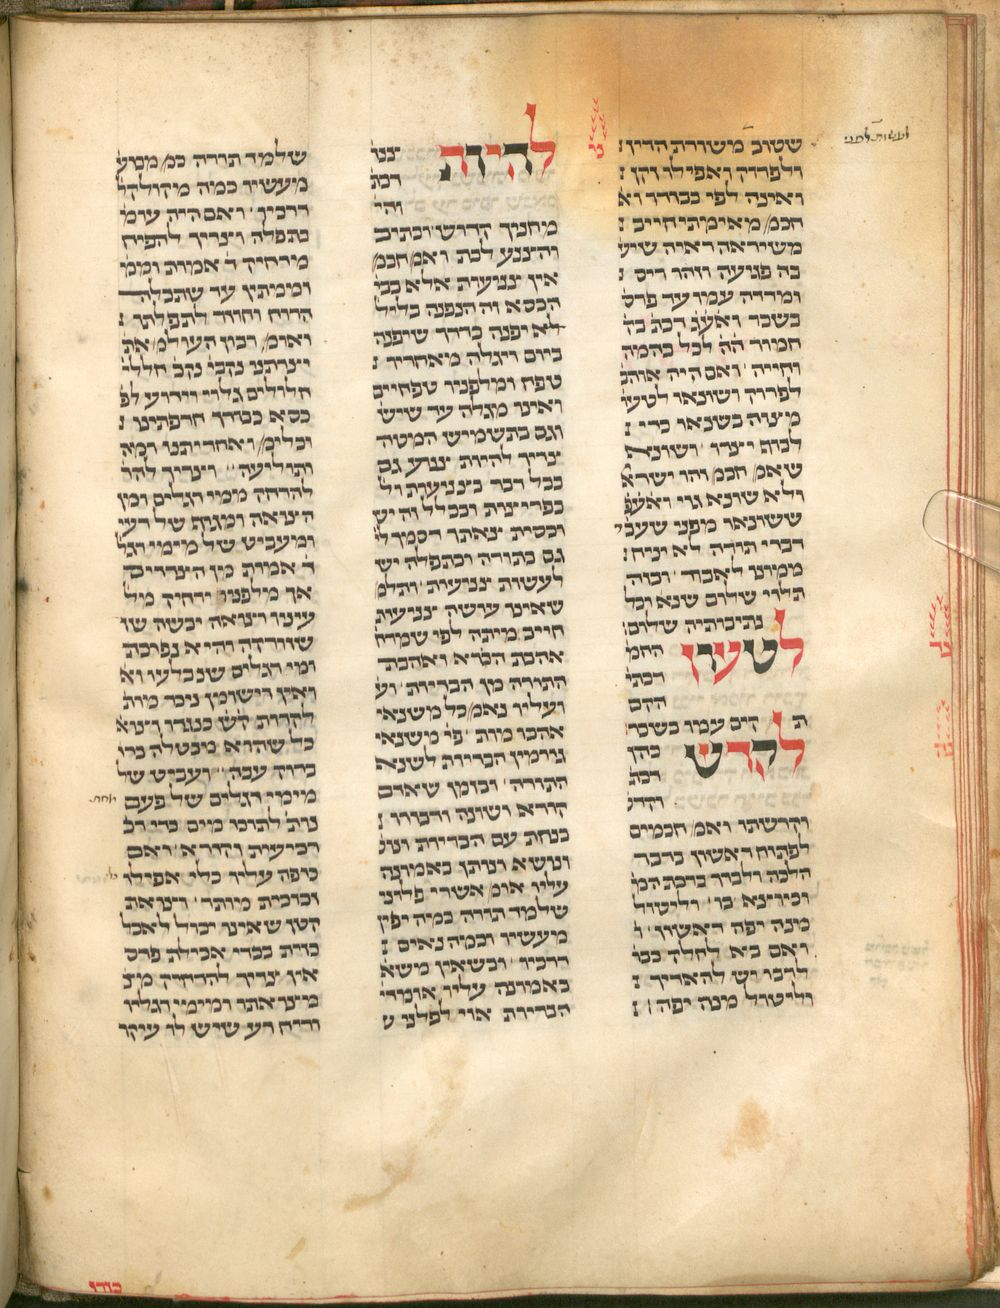 שטוב משורת הדין
ולפרדה ואפילו זקן
ואינה לפי כבודו וא
חכמ׳ מאימתי חייב
משיראה ראיה שיש
בה פגיעה וזהו ריס
ומדדה עמו עד פרס
בשכר ואעפ׳ דכת׳ בה
חמור הה לכל בהמה
וחייה ואם היה אוהב
לפרוק ושונאו לטעו׳
מצוה בשונאו כדי
לכוף יצרו ושונא
שאמ׳ חכמ׳ זהו ישרא׳
ולא שונא גוי ואעפ׳
ששונאו מפני שעב׳
דברי תורה לא יניח
ממונו לאבוד וכוה
תלוי שלום שנא׳ וכל
נתיבותיה שלום
לטעון
החמ׳
דכתי׳
הקם
תקים עמו בשכר
לקדש
כהן
דכת׳
וקדש
וקדשתו ואמ׳ חכמים
לפתוח ראשון בדבר
הלכה ולברך ברכת המ׳
וכיוצא בו׳ וליטול
מנה יפה ראשון
ואם בא לחלק בסו׳
לדבר ויש להאריך
וליטול מנה יפה
להיות
צנו׳
דכת׳
והי׳
מחניך קדוש וכתיב
והצנע לכת ואמ׳ חכמ׳
אין צניעות אלא בבי׳
הכסא וה הנפנה בליל׳
לא יפנה כדרך שיפנה
ביום ויגלה מאחריו
טפח ומלפניו טפחיים
ואינו מגלה עד שישב
וגם בתשמיש המטה
צריך להיות צנוע גם
בכל דבר בצניעות ול׳
בפריצות ובכלל זה יש
וכסית צאתך דסמך ל׳
גם בתורה ובתפלה יש
לעשות צניעות ותלמ׳
שאינו עושה צניעות
חייב מיתה לפי שמרח׳
אהבת הבורא ואהבת
התורה מן הבריות וע׳
ועליו נאמ׳ כל משנאי
אהבו מות פי׳ משנאי
גורמין הבריות לשנא
התורה ובזמן שאדם
קורא ושונה ודבורו
בנחת עם הבריות ונוש׳
ונושא ונותן באמונה
עליו אומ׳ אשרי פלוני
שלמד תורה כמה יפין
מעשיו וכמה נאים
דרכיו ובשאין משא
באמונה עליו אומרי׳
הבריות אוי לפלוני
שלמד תורה כמ׳ מכוע׳
מעשיו כמה מקולקל׳
דרכיו ואם היה עומד
בתפלה וצריך להפיח
מרחיק ד׳ אמות וממ׳
וממתין עד שתכלה
הרוח וחוזר לתפלתו
ואומ׳ רבון העולמ׳ את׳
יצרתנו נקבי נקב חללי׳
חלולים גלוי וידוע לפ׳
כסא כבודך חרפתינו
וכלימ׳ ואחריתנו רמה
ותוליעה וצריך להר׳
להרחק ממי רגלים ומן
הצואה ומגוף של רעי
ומעביט של מימי רגל׳
ד׳ אמות מן הצדדים
אך מלפניו ירחיק מל׳
עינו וצואה יבשה שו׳
שזורקה והיא נפרכת
ומי רגלים שנבלעו וא׳
ואין רישומן ניכר מות׳
לקרות קש׳ כנגדן וצוא׳
כל שהוא מבטלה ברו׳
ברוק עבה ועביט של
מימי רגלים של פעם
נות׳ לתוכו מים כדי רב׳
רביעית וקורא ואם
כופה עליו כלי אפילו
זכוכית מותר וצואת
קטן שאינו יכול לאכל
כזית בכדי אכילת פרס
אין צריך להרחיק מצ׳
מצואתו ומימי רגליו
וריח רע שיש לו עיקר